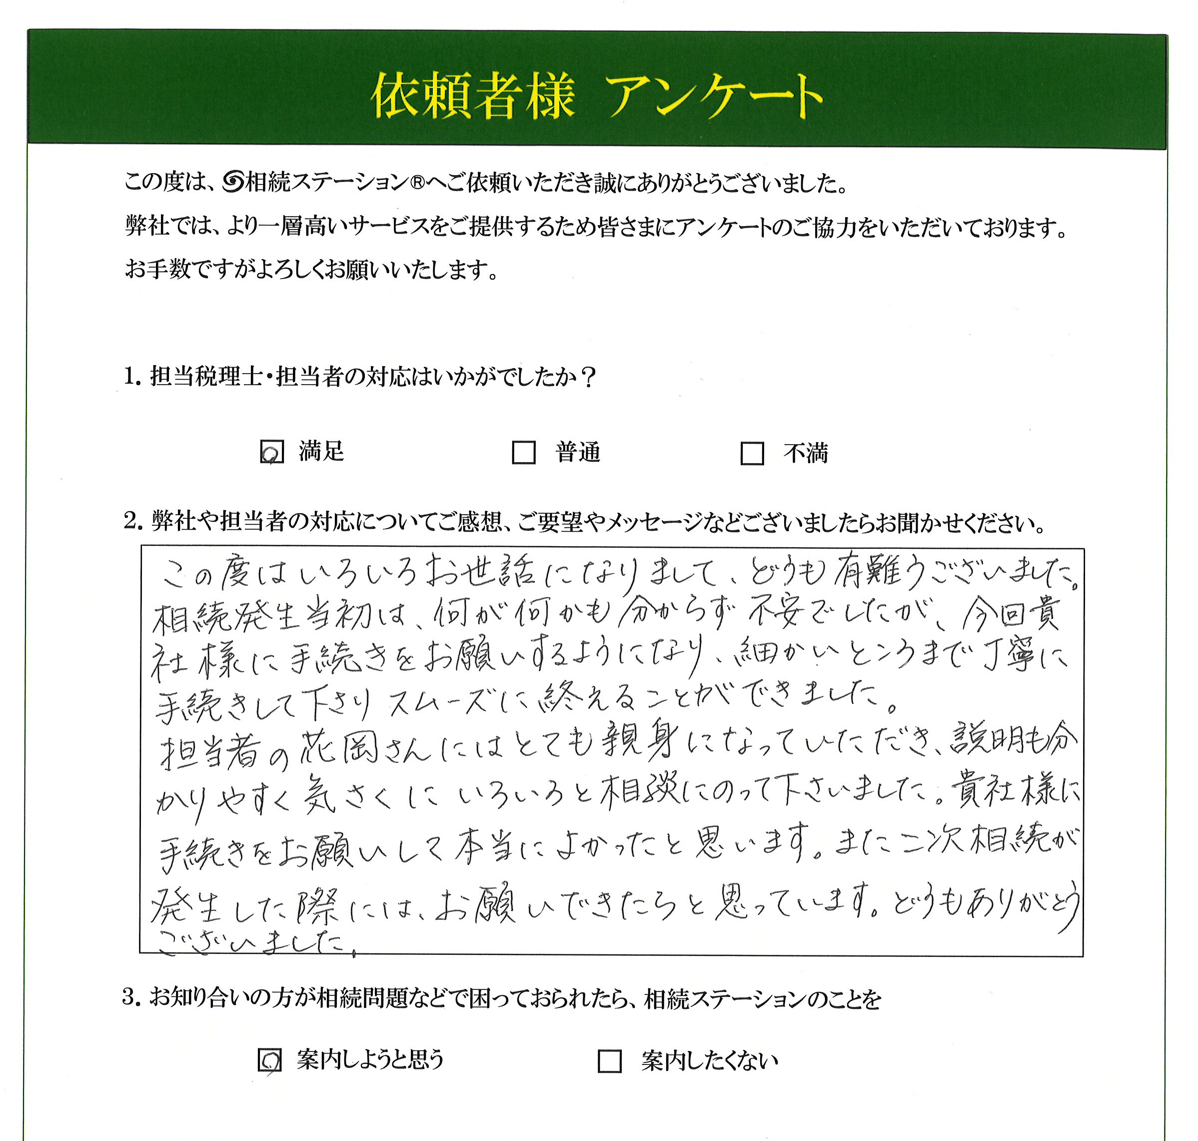 依頼者様 アンケート
この度は、相続ステーション®へご依頼いただき誠にありがとうございました。
弊社では、より一層高いサービスをご提供するため皆さまにアンケートのご協力をいただいております。
お手数ですがよろしくお願いいたします。
1. 担当税理士・担当者の対応はいかがでしたか？
満足 普通 不満
2. 弊社や担当者の対応についてご感想、ご要望やメッセージなどございましたらお聞かせください。
この度はいろいろお世話になりまして、どうも有難うございました。
相続発生当初は、何が何かも分からず不安でしたが、今回貴
社様に手続きをお願いするようになり、細かいところまで丁寧に
手続きして下さりスムーズに終えることができました。
担当者の花岡さんにはとても親身になっていただき、説明も分
かりやすく気さくにいろいろと相談にのって下さいました。貴社様に
手続きをお願いして本当によかったと思います。また二次相続が
発生した際には、お願いできたらと思っています。どうもありがとう
ございました。
3. お知り合いの方が相続問題などで困っておられたら、相続ステーションのことを
案内しようと思う 案内したくない